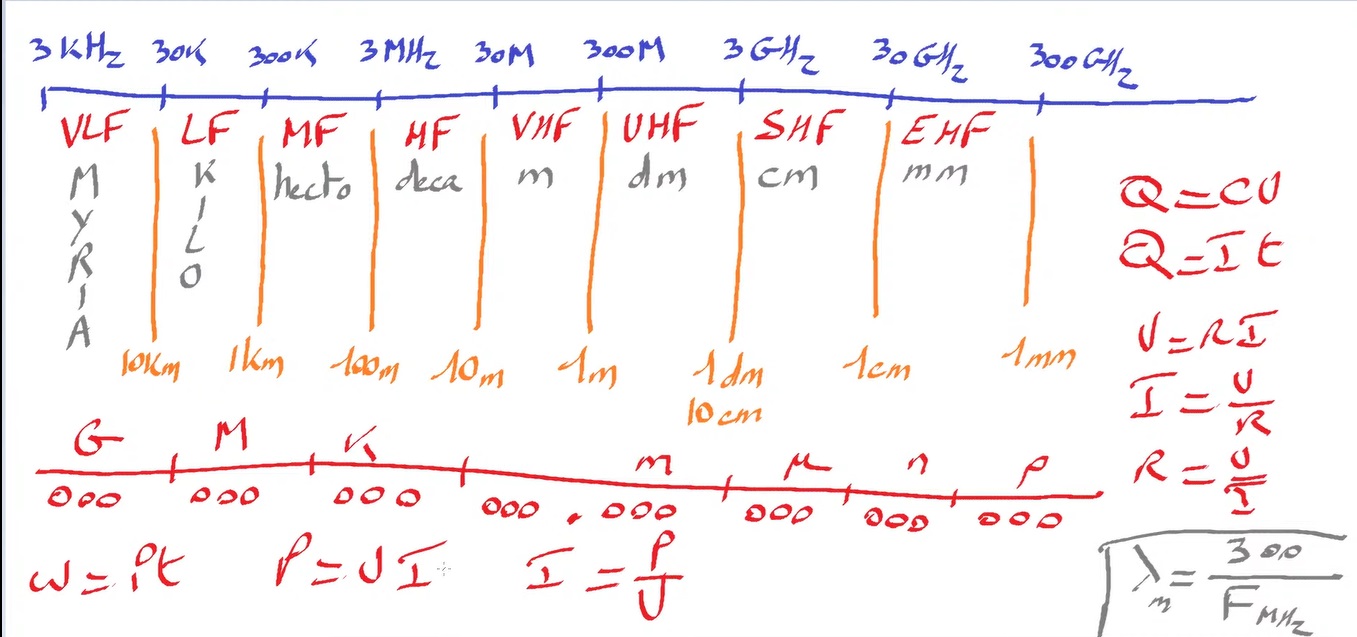 3KHz 30K 300K 3MHz 30M 300M 3GHz 30GHz 300GHz
VLF LF MF HF VHF UHF SHF EHF
MYRIA KILO hecto deca m dm cm mm
10Km 1km 100m 10m 1m 1dm 1cm 1mm
10cm
Q=CU
Q=It
U=RI
I=U/R
R=U/I
G M K m μ n p
000 000 000 000.000 000 000 000
W=Pt P=UI I=P/U
λm=300/FMHz